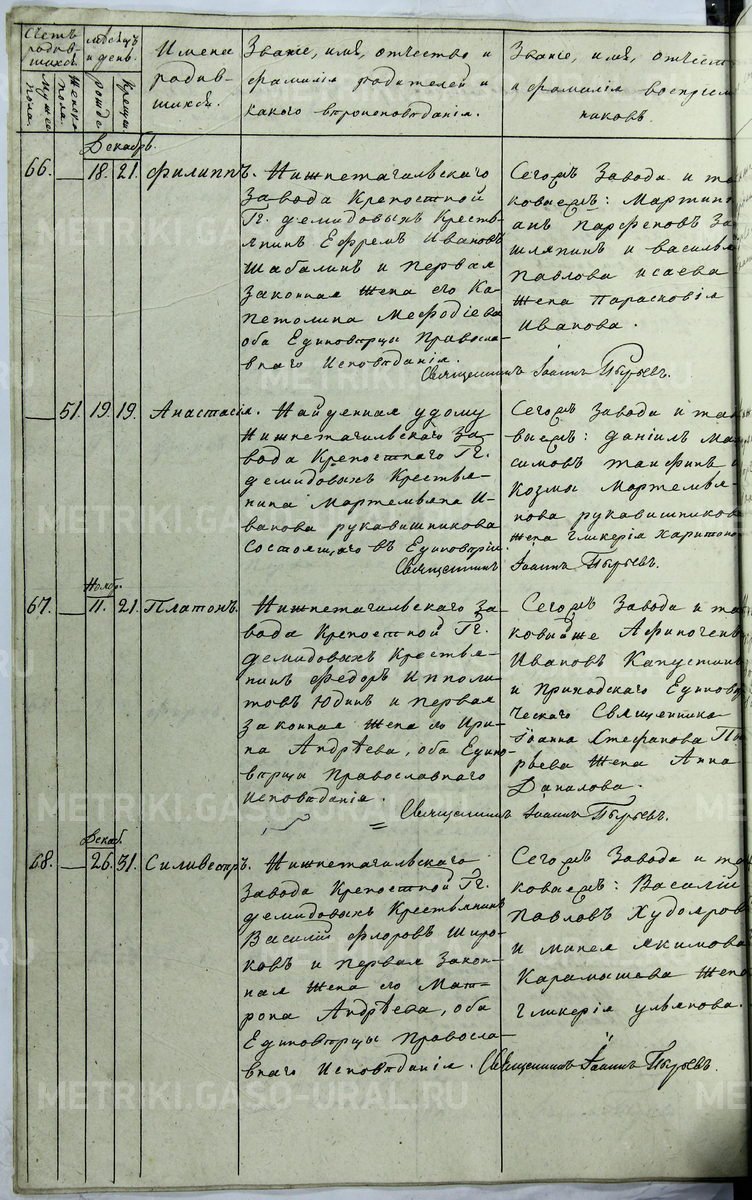 Счетъ родив-шихся. Мѣсяцъ и день. Имена родив-шихся. Званіе, имя, отчество и фамилія родителей и какого вѣроисповѣданія. Званіе, имя, отчест и фамилія воспрiем никовъ.
Мужес пола. Женска пола. Рожде Крещен
Декабрь.
66. — 18. 21. Филиппъ.
Нижнетагильскаго
Завода Крепостной
Гг. Демидовыхъ Кресть-
янинъ Ефремъ Ивановъ
Шабалинъ и Первая
Законная Жена его Ка-
петолина Мефодіева
оба Единовѣрцы Правосла-
внаго Исповѣданія.
Сегожъ Завода и та
коваежъ: Мартин
анъ Парфеновъ За
шляпинъ и Василья
Павлова Исаева
Жена Парасковія
Иванова.
Священникъ Іоаннъ Пырьевъ.
— 51. 19. 19. Анастасія.
Найденная у дому
Нижнетагильскаго За-
вода Крепостнаго Гг.
Демидовыхъ Крестья-
нина Мартемьяна И-
ванова Рукавишникова
Состоящаго въ Единовѣріи.
Сегожъ Завода и так
ваежъ: Даніилъ Мак
симовъ
Козмы Мартемья-
нова Рукавишникова
Жена Гликерія Харитонов
Священникъ Іоаннъ Пырьевъ.
Ноябр.
67. — 11. 21. Платонъ.
Нижнетагильскаго За-
вода Крепостной Гг.
Демидовыхъ Крестья-
нинъ Федоръ Ипполи-
товъ Юдинъ и Первая
Законная Жена его Ири-
на Андрѣева, оба Едино-
вѣрцы Православнаго
Исповѣданія.
Сегожъ Завода и та
Ивановъ Капустинъ
и Приходскаго Единовѣр
ческаго Священника
Іоанна Стефанова Пы
рьева Жена Анна
Данилова.
Священникъ Іоаннъ Пырьевъ.
Декаб.
68. — 26. 31. Силивестръ.
Нижнетагильскаго
Завода Крепостной Гг.
Демидовыхъ Крестьянинъ
Василій Флоровъ Широ-
ковъ и Первая Закон-
ная Жена его Мат-
рона Андрѣева, оба
Единовѣрцы Правосла-
внаго Исповѣданія.
Сегожъ Завода и та
коваежъ: Василій
Павловъ Худояров
и Минея Якимова
Карамышева Жена
Гликерія Ульянова.
Священникъ Іоаннъ Пырьевъ.
METRIKI.GASO-URAL.RU